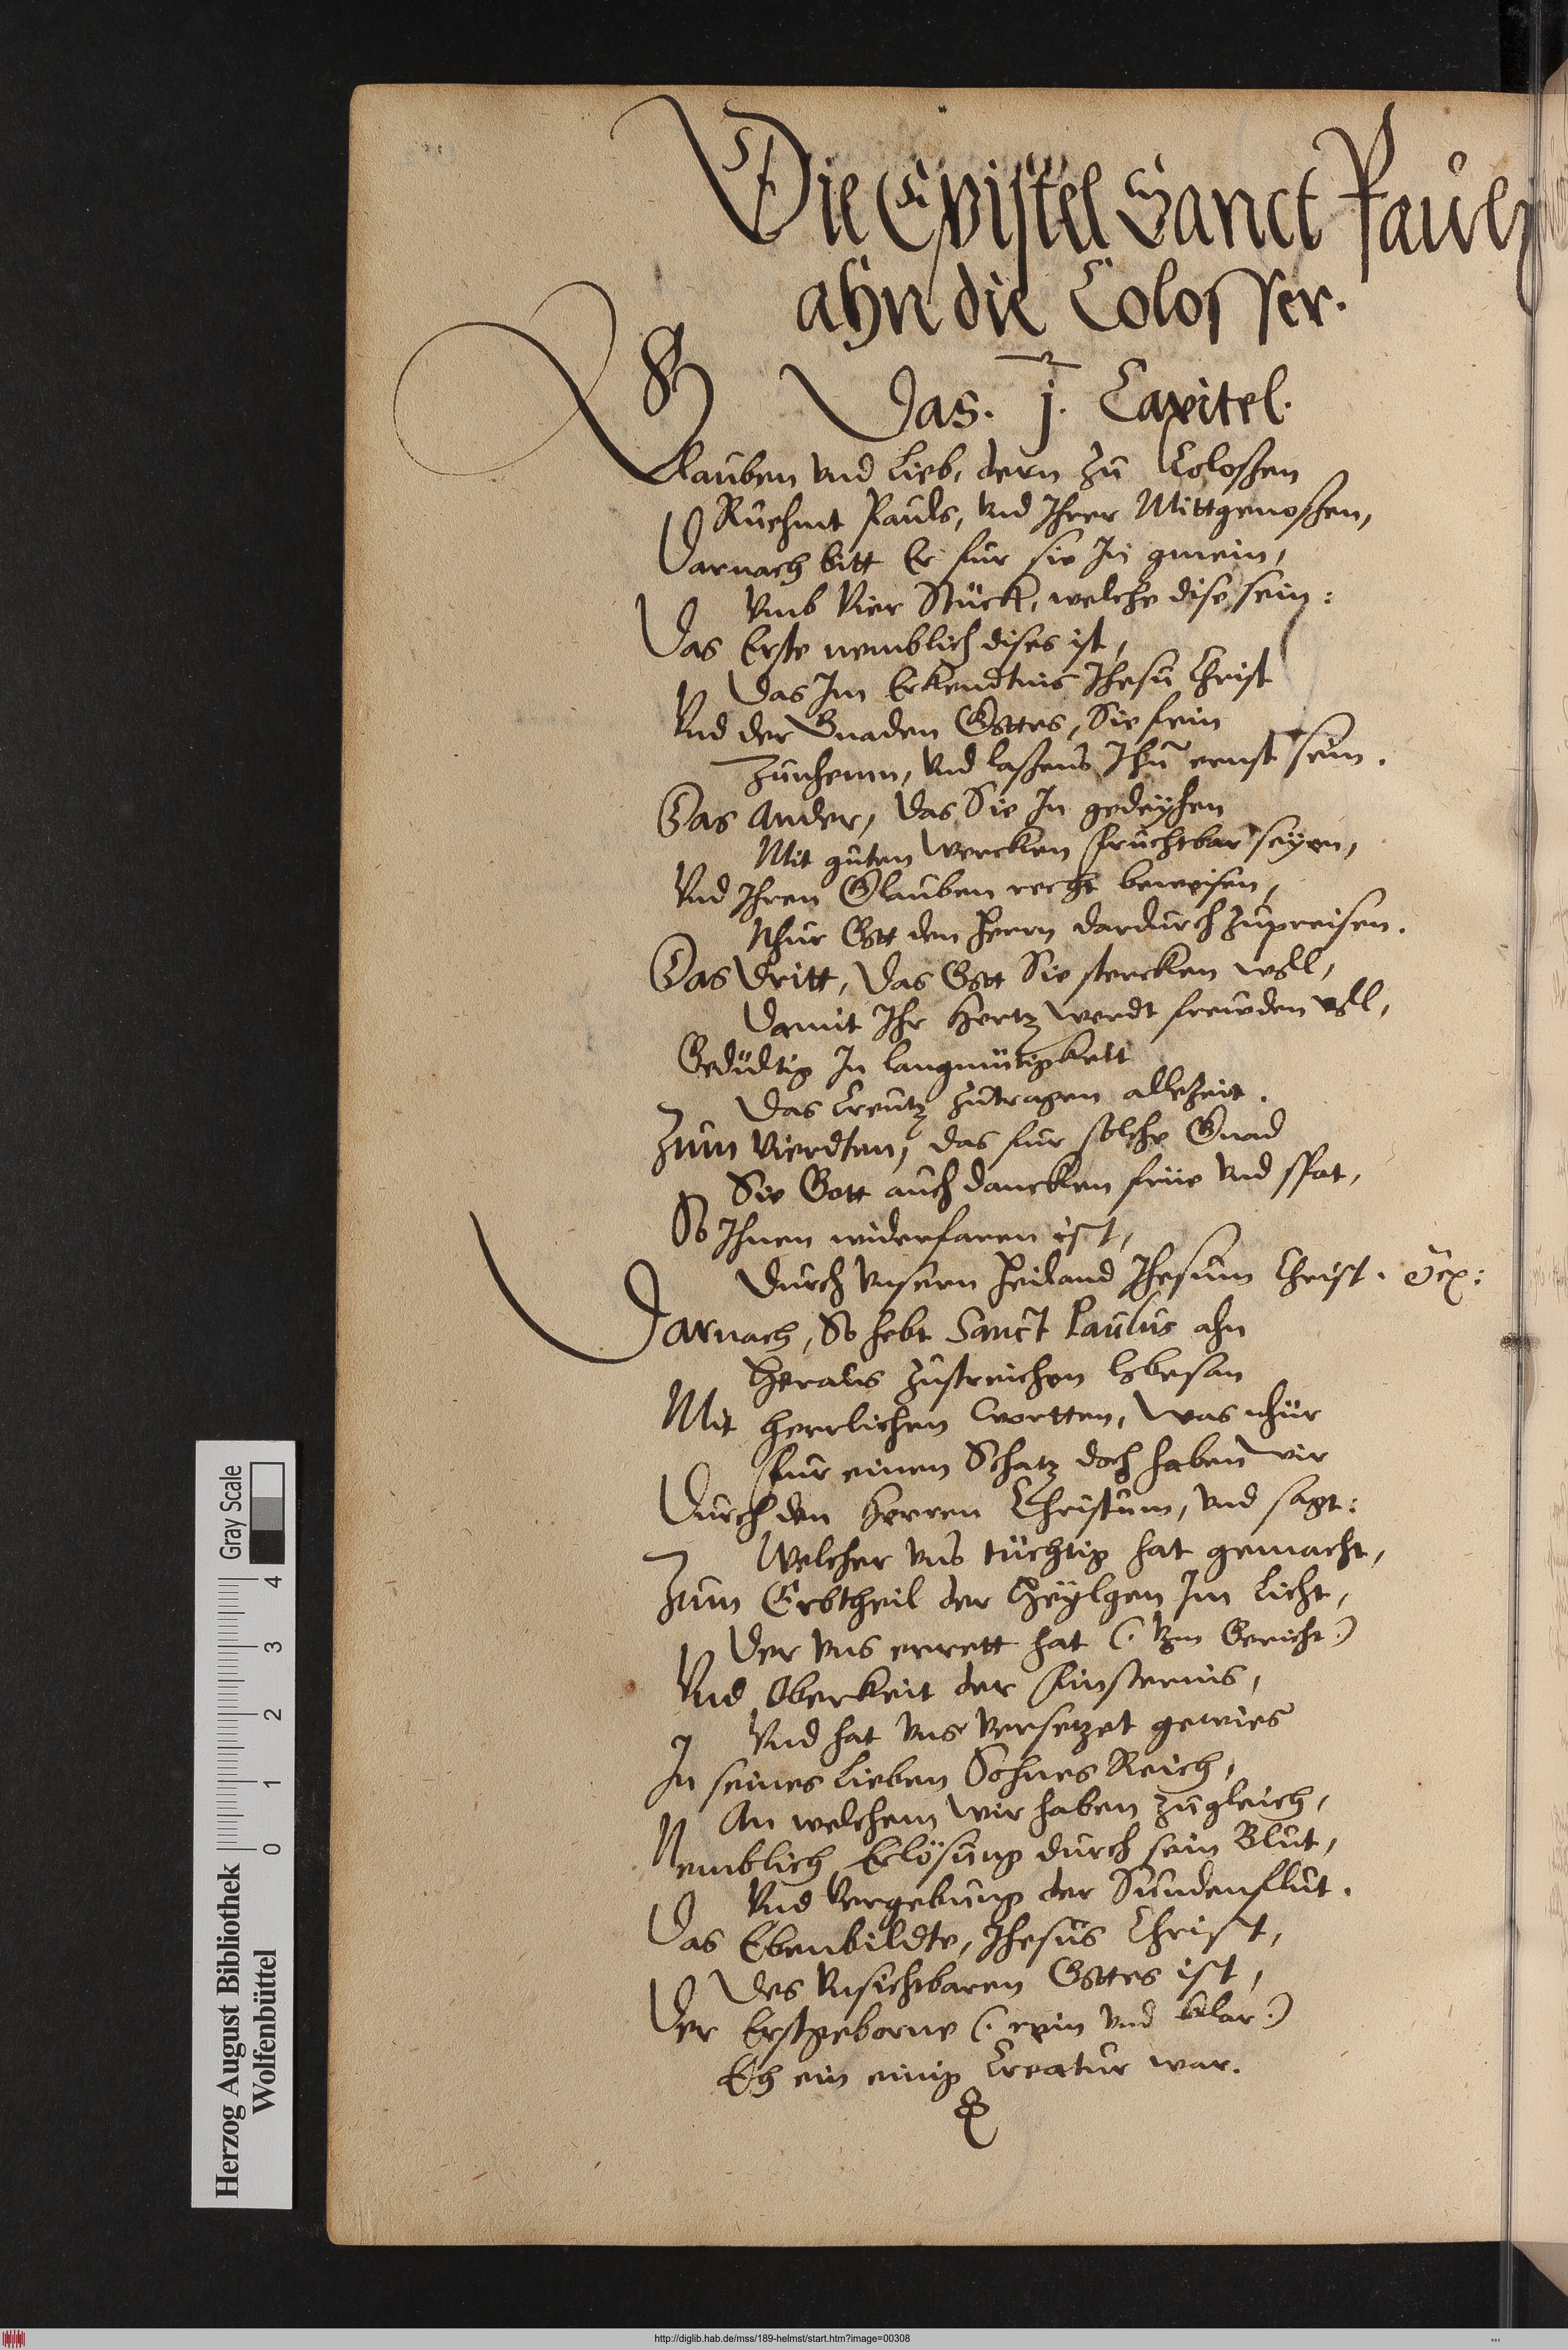 Die Epistel Sanct Pauls
ahn die Colosser.
Das. j. Capitel.
Glauben vnd Lieb, dern zu Coloßen
Ruehmt Pauls, vnd Ihrer Mittgenoßen,
Darnach bitt Er fur sie In gmein,
Vmb Vier Stück, welche dise sein:
Das Erste nemblich dises ist,
Das Im Erkendtnis Ihesu Christ
Vnd der Gnaden Gottes, Sie fein
Zunhemn, vnd laßens Ihn ernst sein.
Das Ander, das Sie In gedeyhen
Mit guten Wercken fruchtbar seyen,
Vnd Ihren Glauben recht beweisen,
Nhur Gott den Herrn dardurch zupreisen.
Das Dritt, Das Gott Sie stercken woll,
Damit Ihr Hertz werdt freuden voll,
Gedüldtig In langmütigkeit
Das Creutz zutragen allezeit.
Zum Vierdten, das fur solche Gnad
Sie Gott auch dancken früe vnd spat,
So Ihnen widerfaren ist,
Durch Vnsern Heiland Ihesum Christ.
Darnach, So hebt Sanct Paulus ahn
Heraus zustreichen lobesan
Mit herrlichen wortten, was nhür
fur einen Schatz doch haben wir
Durch den Herren Christum, vnd sagt:
Welcher vns tüchtig hat gemacht,
Zum Erbtheil der Heylgen Im Licht,
Der vns errett hat (: vom Gericht:)
Vnd Oberkeit der Finsternis,
Vnd hat vns versetzet gewies
In seines Lieben Sohnes Reich,
An welchem wir haben zugleich,
Nemblich Erlösung durch sein Blut,
Vnd Vergebung der Sundenflut.
Das Ebenbildte, Ihesus Christ,
Des Vnsichtbaren Gottes ist,
Der Erstgeborne (: rein vnd klar:)
Eh ein einig Creatur war.
Herzog August Bibliothek
Wolfenbüttel
0 1 2 3 4
Gray Scale
http://diglib.hab.de/mss/189-helmst/start.htm?image=00308